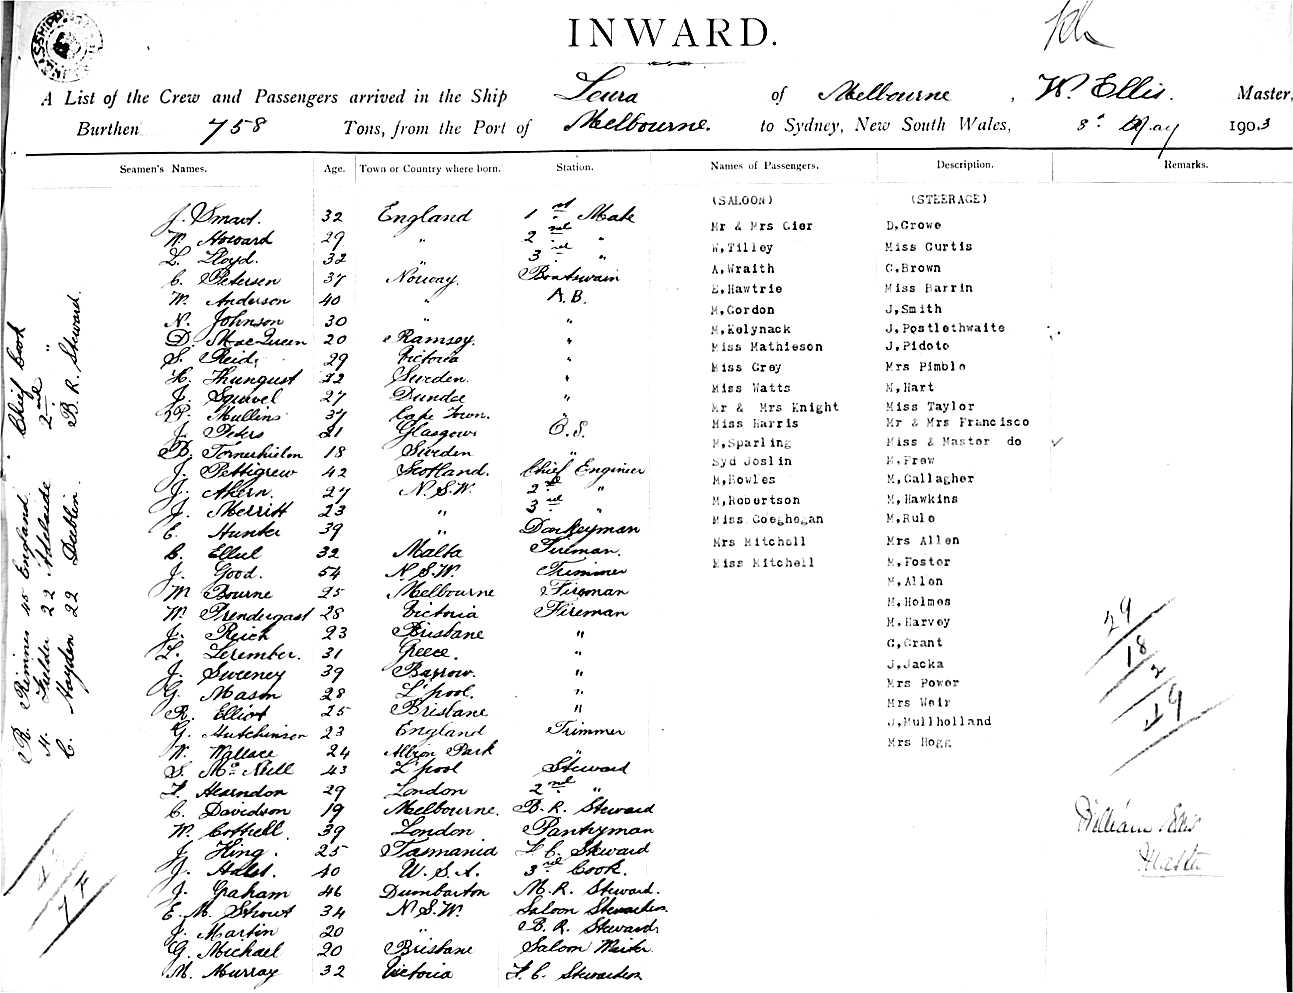 INWARD.
A List of the Crew and Passengers arrived in the Ship Leura of Melbourne, W. Ellis. Master,
Burthen 758 Tons, from the Port of Melbourne. to Sydney, New South Wales, 8th May 1903
Seamen's Names. Age. Town or Country where born. Station. Names of Passengers. Description. Remarks.
(SALOON) (STEERAGE)
J. Smart. 32 England 1st Mate
Mr & Mrs Gier D,Crowe
W. Howard 29 " 2nd "
W,Tilley Miss Curtis
L. Lloyd. 32 " 3rd "
A,Wraith C,Brown
C. Petersen 37 Norway. Boatswain
E,Hawtrie Miss Barrin
W. Anderson 40 " A.B.
M,Gordon J,Smith
N. Johnson 30 " "
M,Kelynack J,Postlethwaite
D. MacQueen 20 Ramsey. "
Miss Mathieson J,Pidoto
S. Reid. 29 Victoria "
Miss Grey Mrs Pimblo
H. Thunqust 22 Sweden. "
Miss Watts M,Hart
J. Squivel 27 Dundee "
Mr & Mrs Knight Miss Taylor
P. Mullins 37 Cape Town. "
Miss Harris Mr & Mrs Francisco
J. Peters 21 Glasgow O.S.
M,Sparling Miss & Master do
B. 18 Sweden "
Syd Joslin M,Frew
J. Pettigrew 42 Scotland. Chief Engineer
M,Howles M,Gallagher
J. Ahern. 27 N.S.W. 2nd "
M,Robertson M,Hawkins
J. Merritt 23 " 3rd "
Miss Goeghegan M,Rule
E. Hunter 39 " Donkeyman
Mrs Mitchell Mrs Allen
C. Ellul 32 Malta Fireman.
Miss Mitchell M,Foster
J. Good. 54 N.S.W. Trimmer
M,Allen
W. Bourne 25 Melbourne Fireman
M,Holmes
W. Prendergast 28 Victoria Fireman
M,Harvey
J. Reick 23 Brisbane "
G,Grant
L. Lerimber. 31 Greece. "
J,Jacka
J. Sweeney 39 Barrow. "
Mrs Power
G. Mason 28 L'pool. "
Mrs Weir
R. Elliot 25 Brisbane "
J,Mullholland
G. Hutchinson 23 England Trimmer
Mrs Hogg
W. Wallace 24 Albion Park "
S. McNeill 43 L'pool Steward
F. Hearndon 29 London 2nd "
C. Davidson 19 Melbourne. B.R. Steward
W. Cottrell 39 London Pantryman
J. King. 25 Tasmania F.C. Steward
J. Hales. 40 U.S.A. 3rd Cook.
J. Graham 46 Dumbarton M.R. Steward.
E. M. Strout 34 N.S.W. Saloon Stewardess.
J. Martin 20 " B.R. Steward
G. Michael 20 Brisbane Saloon Waiter
M. Murray 32 Victoria F.C. Stewardess
R. Rimner 45 England Chief Cook
H. Fielder 22 Adelaide 2nd "
C. Hayden 22 Dublin. B.R. Steward.
29
18
2
49
William Ellis
Master